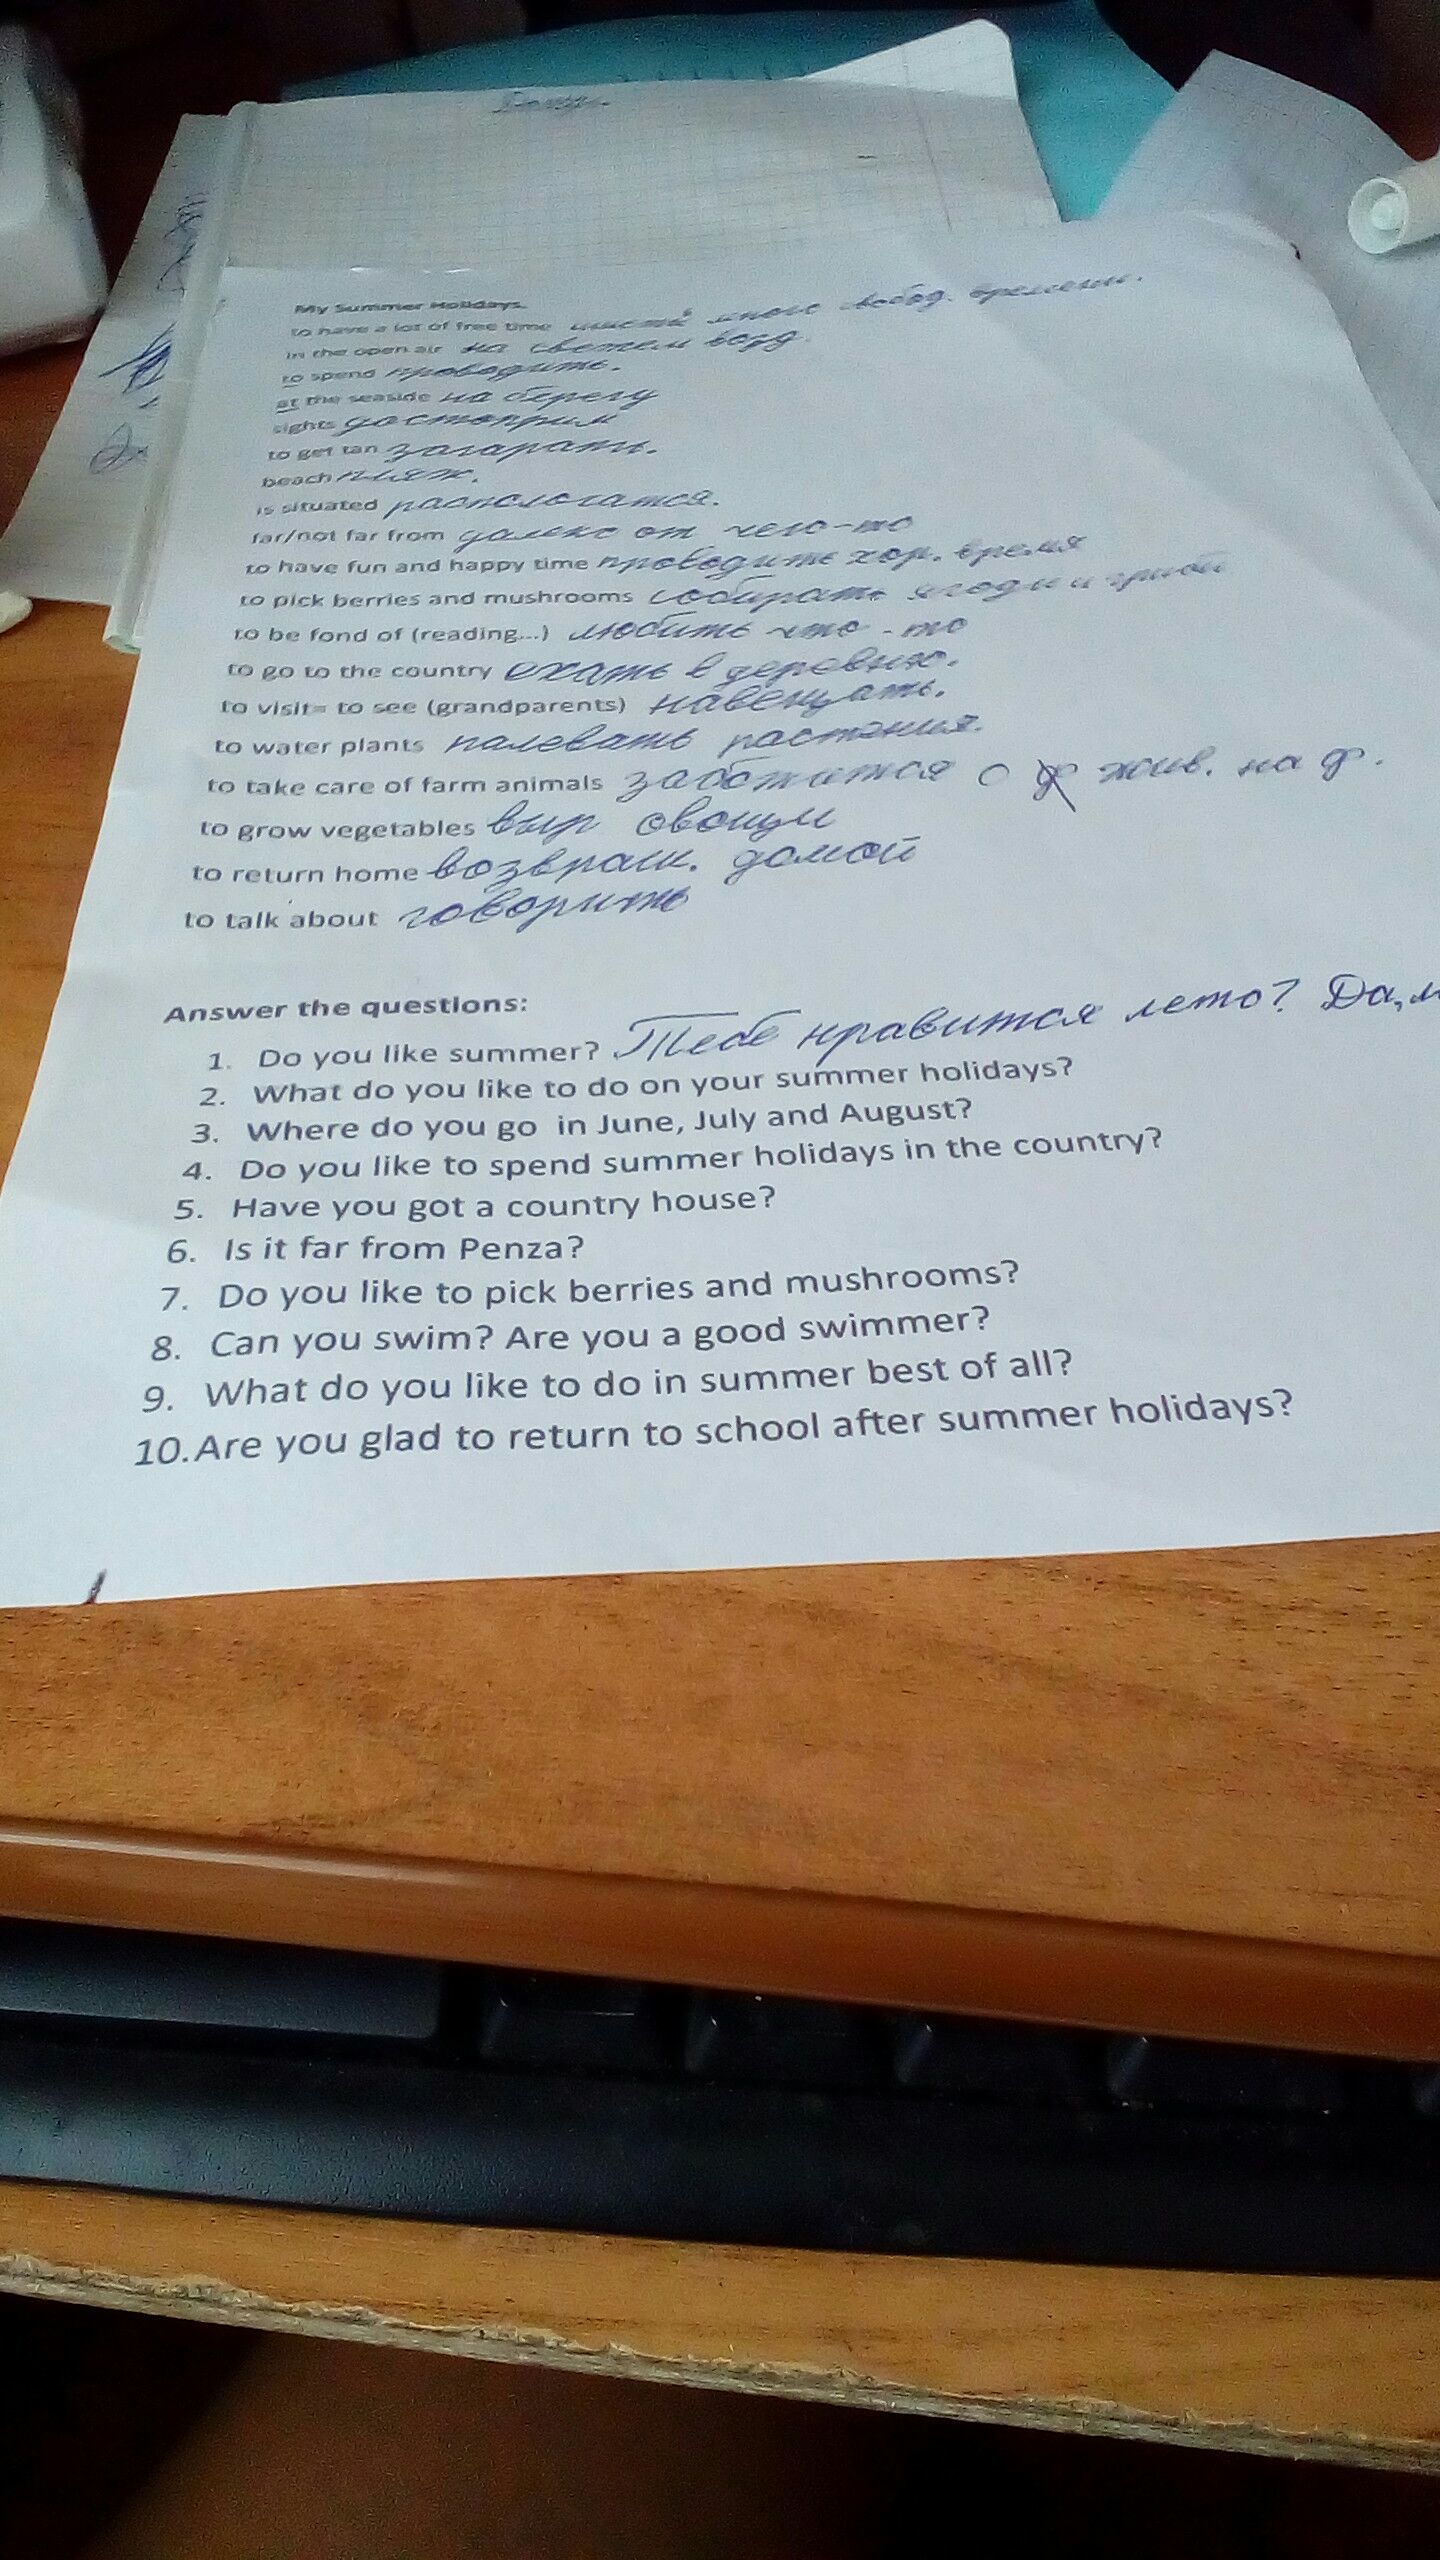 My Summer Holidays.
to have a lot of free time иметь много свобод. времени.
in the open air на светем возд.
to spend проводить.
at the seaside на берегу
sights достоприм
to get tan загарать.
beach пляж.
is situated распологатся.
far/not far from далеко от чего-то
to have fun and happy time проводить хор. время
to pick berries and mushrooms собирать ягоды и грибы
to be fond of (reading...) любить что-то
to go to the country ехать в деревню.
to visit= to see (grandparents) навещать.
to water plants палевать растения.
to take care of farm animals заботится о жив. на ф.
to grow vegetables выр овощи
to return home возвращ. домой
to talk about говорить
Answer the questions:
1. Do you like summer? Тебе нравится лето? Да,
2. What do you like to do on your summer holidays?
3. Where do you go in June, July and August?
4. Do you like to spend summer holidays in the country?
5. Have you got a country house?
6. Is it far from Penza?
7. Do you like to pick berries and mushrooms?
8. Can you swim? Are you a good swimmer?
9. What do you like to do in summer best of all?
10. Are you glad to return to school after summer holidays?